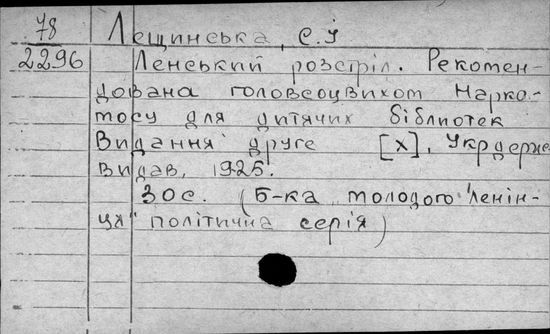 78 Лещинська, Є.І
2296 Ленський розстріл. Рекомен-
дована головсоцвихом Нарко-
тосу для дитячих бібліотек
Видання друге [Х], Укрдерж
видав, 1925.
30с. (Б-ка молодого "ленін-
ця" політична серія)